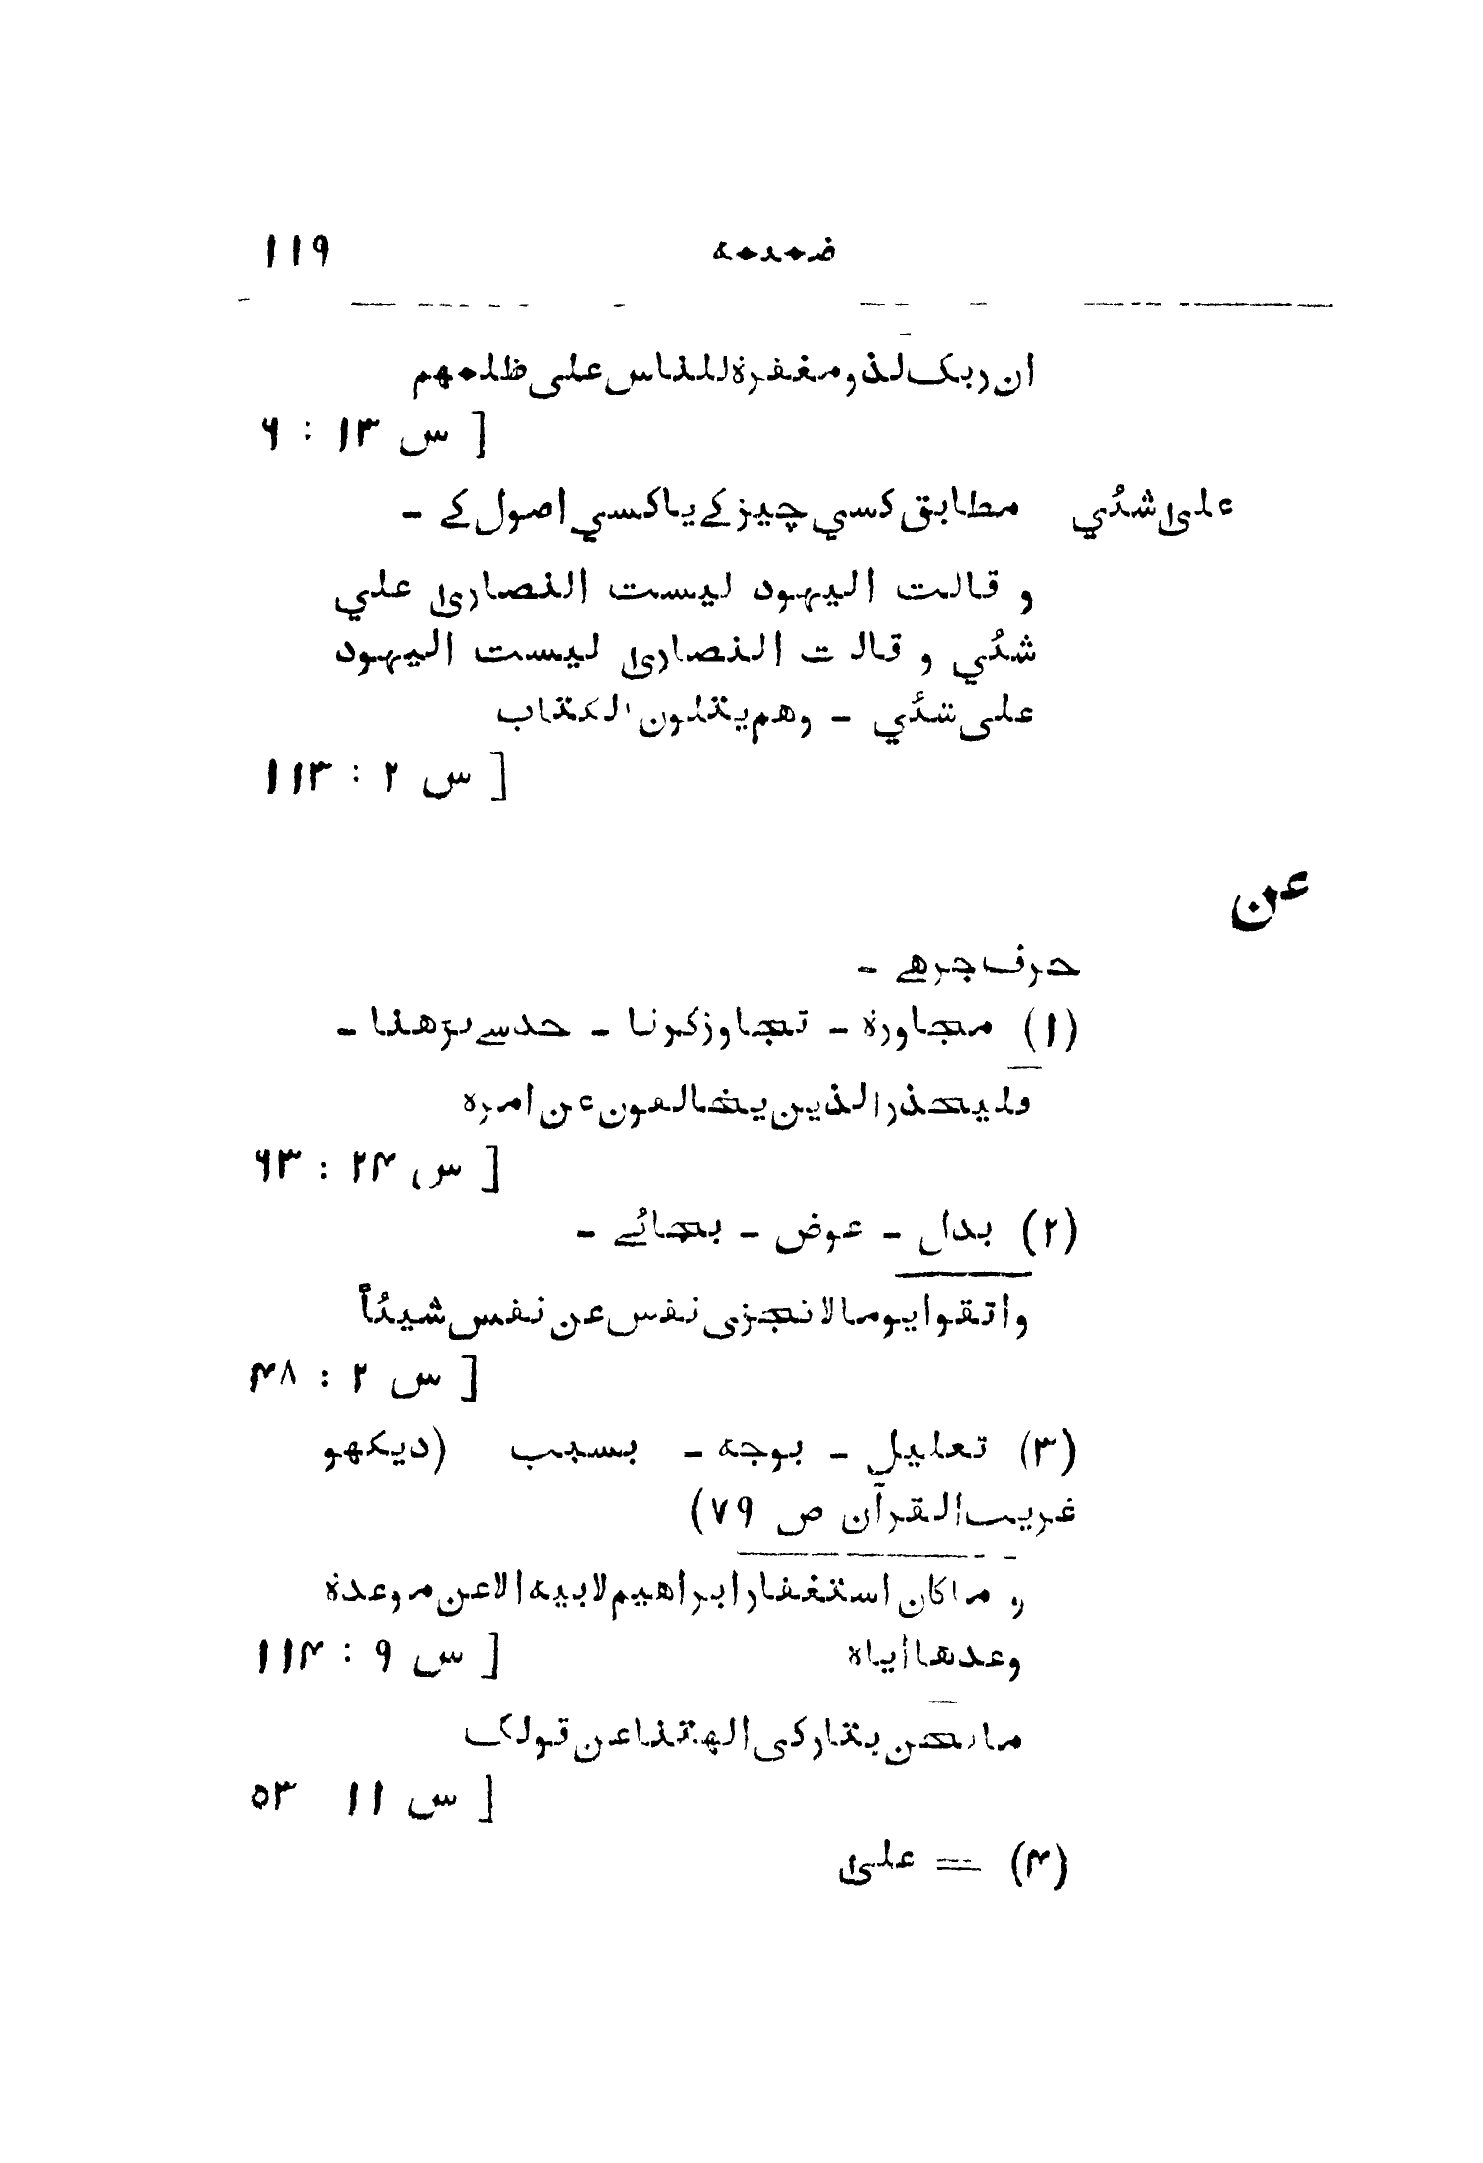 ضمیمه ۱۱۹
ان ربک لذو مغفرة للناس علی ظلمهم
[ س ۱۳ : ۶
علیٰ شئي مطابق کسي چیز کے یا کسي اصول کے -
و قالت الیهود لیست النصاریٰ علي
شئي و قالت النصاریٰ لیست الیهود
علی شئي - وهم یتلون الکتاب
[ س ۲ : ۱۱۳
عن
حرف جر هے -
(۱) مجاوزة - تجاوز کرنا - حد سے بڑهنا -
ولیحذر الذین یخالفون عن امره
[ س ۲۴ : ۶۳
(۲) بدال - عوض - بجائے -
واتقوا یوما لا تجزی نفس عن نفس شیئاً
[ س ۲ : ۴۸
(۳) تعلیل - بوجه - بسبب (دیکهو
غریب القرآن ص ۷۹)
و ما کان استغفار ابراهیم لابیه الا عن موعدة
وعدها ایاه [ س ۹ : ۱۱۴
ما نحن بتارکی الهتنا عن قولک
[ س ۱۱ ۵۳
(۴) = علیٰ